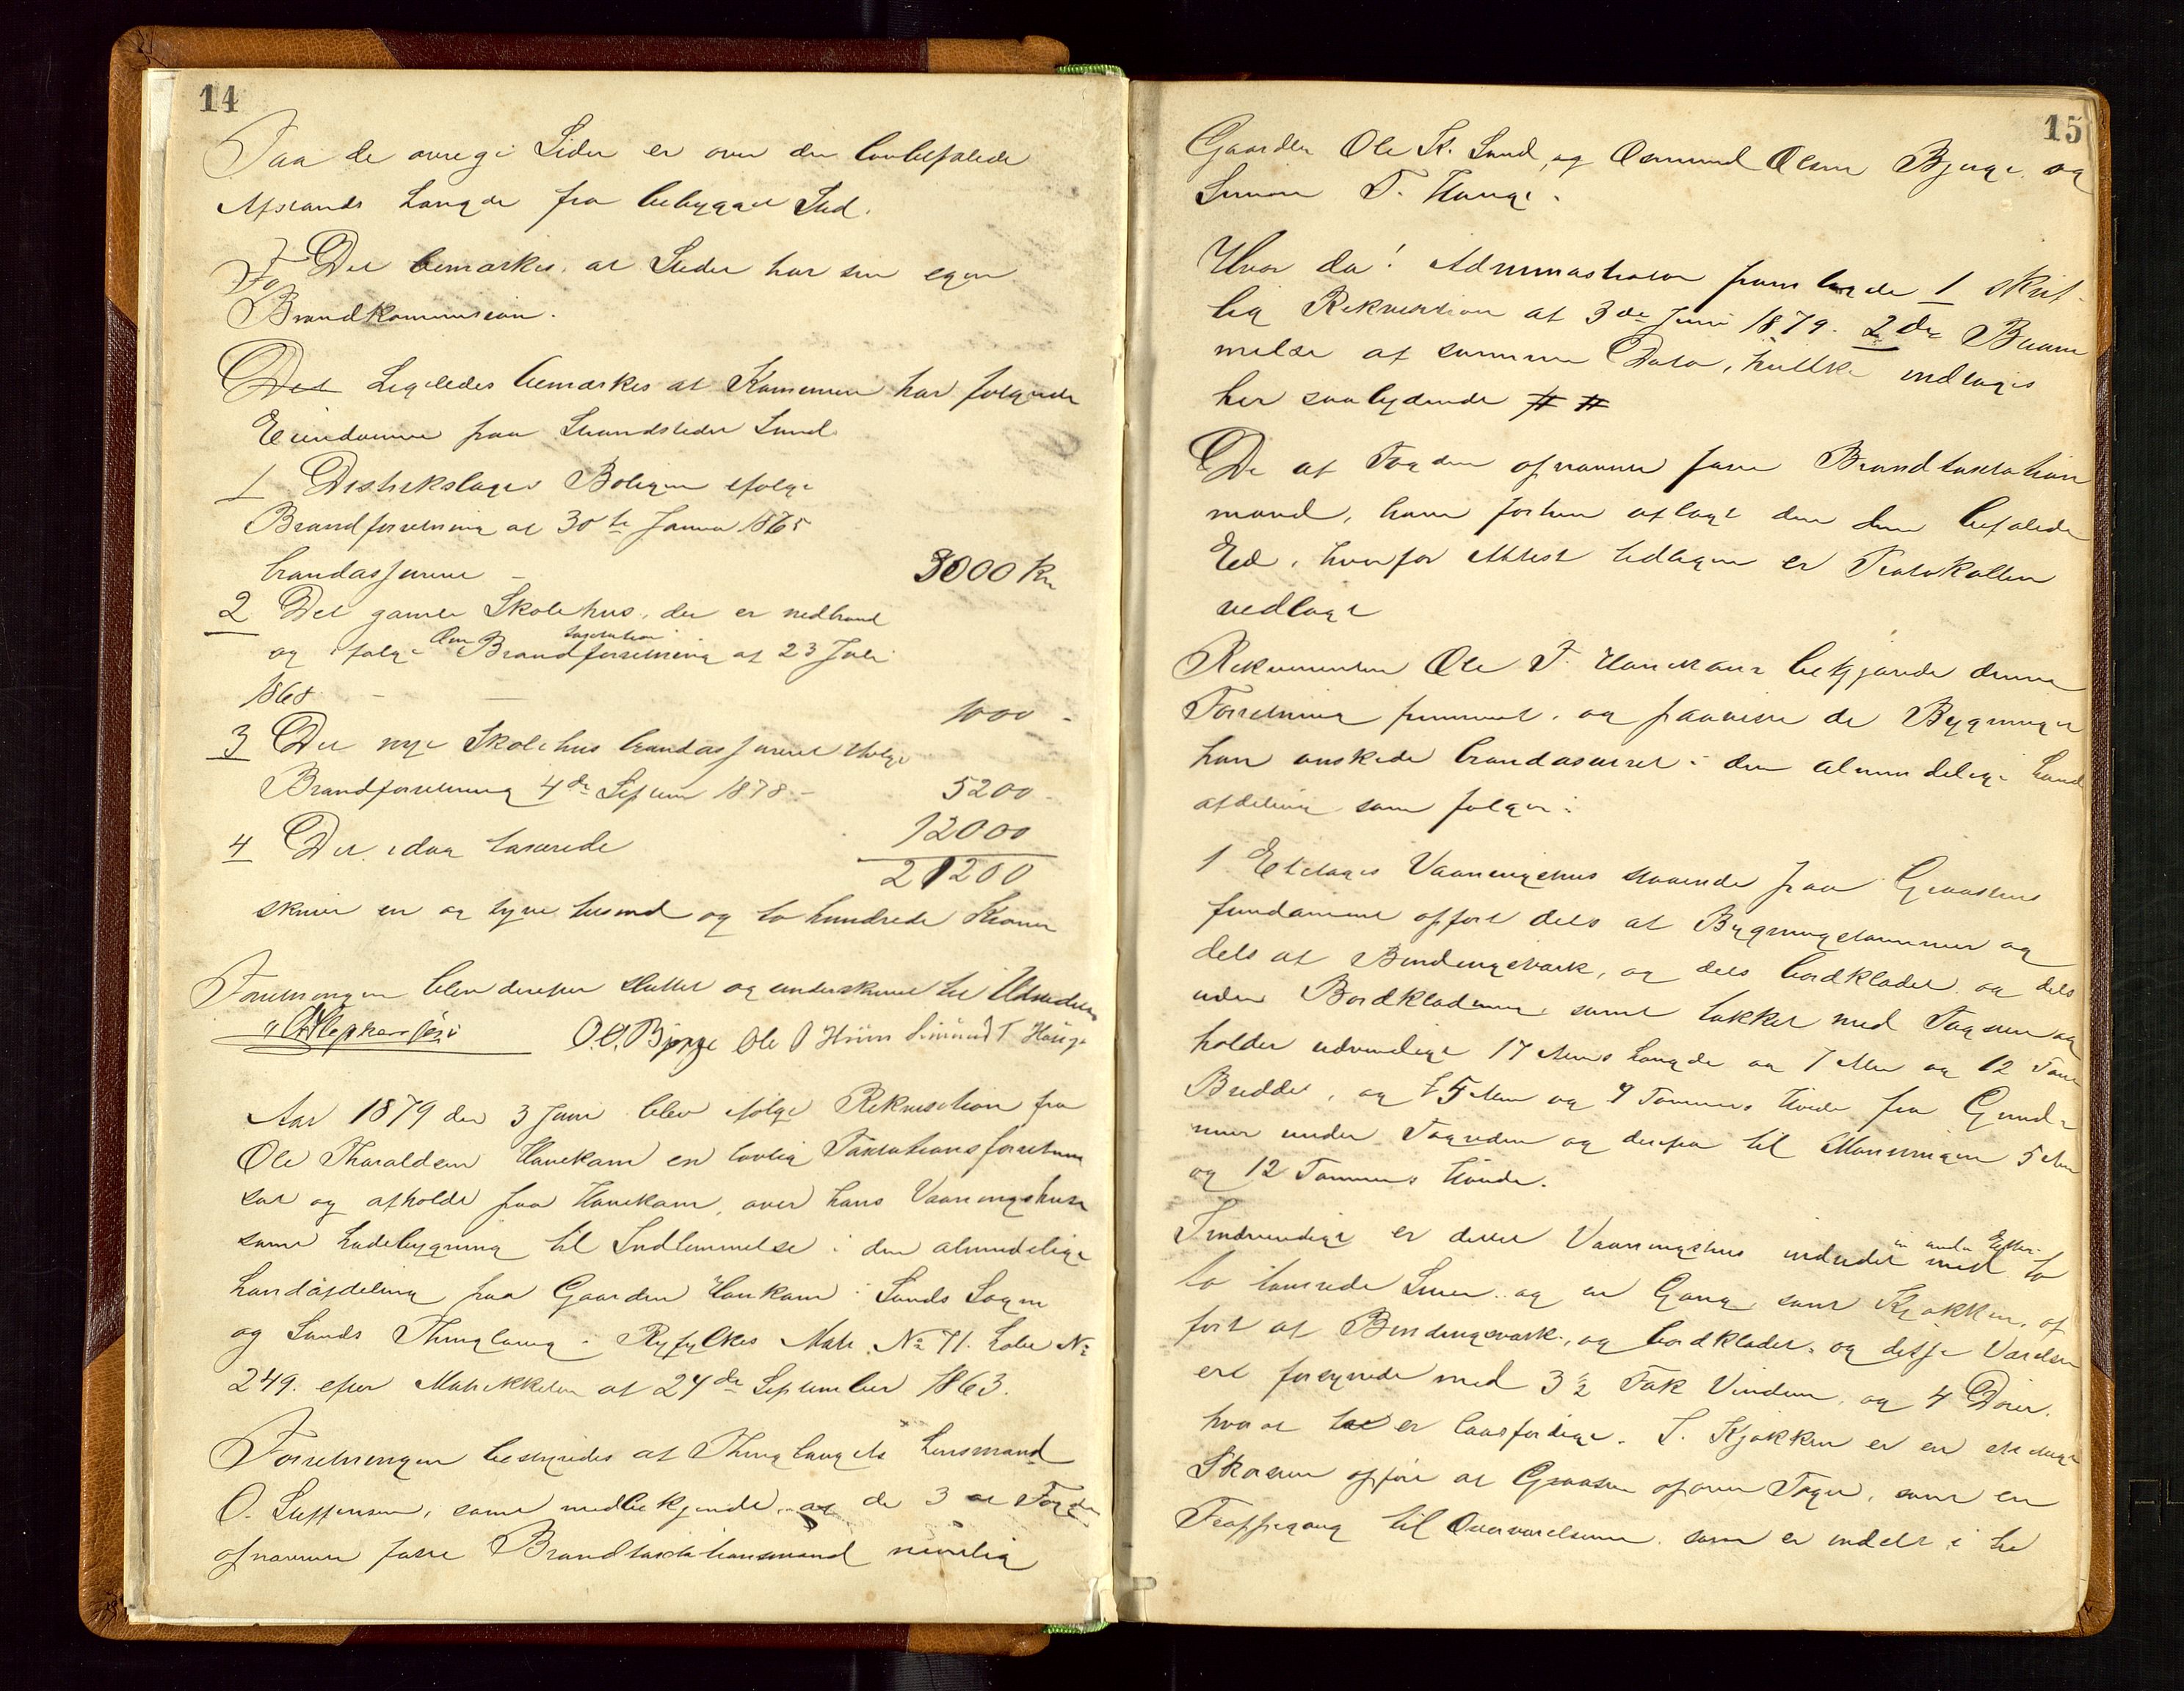 14
Paa de øvrige Sider er over den lovbefalede
Afstands Længde fra bebygget Sted.
Det bemærkes, at Stedet har sin egen
Brandkommission.
Det Ligeledes bemærkes at Kommunen har følgende
Eiendomme paa Strandstedet Sand
1 Distrikslægens Boligen ifølge
Brandforretning af 30te Janua 1865
brandassurerer 3000 Kr
2 Det gamle Skolehus, der er nedbrand
og ifølge Om Brandforretning af 23 Juli
taxtation
1868 - 1000 -
3 Det nye Skolehus brandassureret ifølge
Brandforretning 4de Septem 1878 - 5200 -
4 Det idag taxerede 12000
21200
skriver en og tyve tusend og to hundrede Kroner
Forretningen blev derefter sluttet og underskrevet til Udstedelse
O.O. Bjørge Ole O Hiim Simund T Hauge
Aar 1879 den 3 Juni blev ifølge Rekvisition fra
Ole Tharaldsen Hanekam en lovlig Taxtationsforretning
sat og afholdt paa Hanekam, over hans Vaaningshuse
samt Ladebygning til Indlemmelse i den almindelige
Landafdeling paa Gaarden Hankam i Sands Sogn
og Sands Thinglaug i Ryfylkes Matr. No 71. Løbe No
249. efter Matrikkelen af 24de September 1863.
Forretningen bestyredes af Thinglaugets Lensmand
O. Steffensen, samt medbekjendt af de 3 af Fogden
opnævnte faste Brandtaxtationsmænd nemlig
15
Gaarden Ole St. Sand, og Osmund Olsen Bjerge og
Simon T. Hauge.
Hvor da! Administrator fremlagde 1 skrift-
lig Rekvisition af 3de Juni 1879. 2den Beram
melse af samme Dato, hvilke indtages
her saalydende # #
De af Fogden opnævnte faste Brandtaxtation
mænd, have forhen aflagt den dem befalede
Eed, hvorfor Attest tidligere er Protokollen
vedlagt
Rekvirenten Ole T. Hanekam bekjendte denne
Forretning fremmet, og paaviste de Bygninger
han ønskede brandassurret i den almindelige Land
afdeling som følger:
1 Et Etages Vaaningshus staaende paa Graastens
fundament opført dels af Bygningstømmer og
dels af Bindingsværk, og dels bordklædet og dels
uden Bordklædning, samt takket med Tagsten og
holder udvendige 17 Alens Længde og 7 Alen og 12 Tom
Bredde, og 5 Alen og 9 Tommers Høide fra Grund-
muur under Tagreden og derefra til Mønningen 5 Alen
og 12 Tommers Høide.
Indvendige er dette Vaaningshus indredet med to
to tømrede Stuer og en Gang, samt Kjøkken, op
ført af Bindingsværk, og bordklædet, og disse Værelser
ere forsynede med 3 ½ Fak Vinduer, og 4 Døre.
hvoraf to er laasfærdige. I Kjøkken er en
Skorsten opført af Graasten ofver Taget, samt en
Trappegang til Øverværelserne, som er inddelt i tre